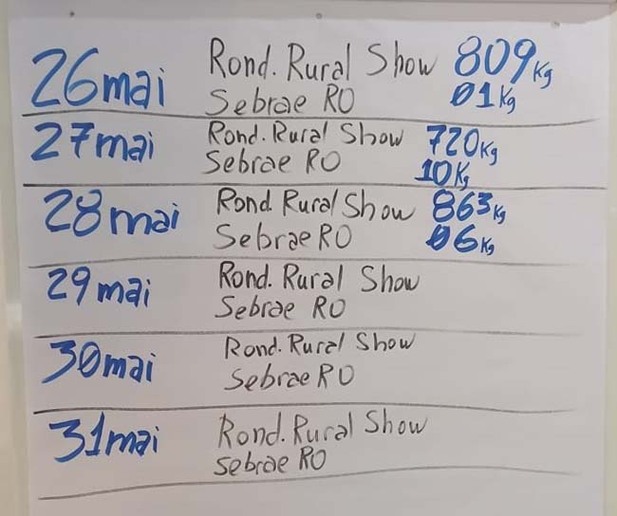 26mai Rond. Rural Show 809Kg
Sebrae RO 01Kg
27mai Rond. Rural Show 720Kg
Sebrae RO 10Kg
28mai Rond Rural Show 863Kg
Sebrae RO 06Kg
29mai Rond. Rural Show
Sebrae RO
30mai Rond. Rural Show
Sebrae RO
31mai Rond. Rural Show
Sebrae RO